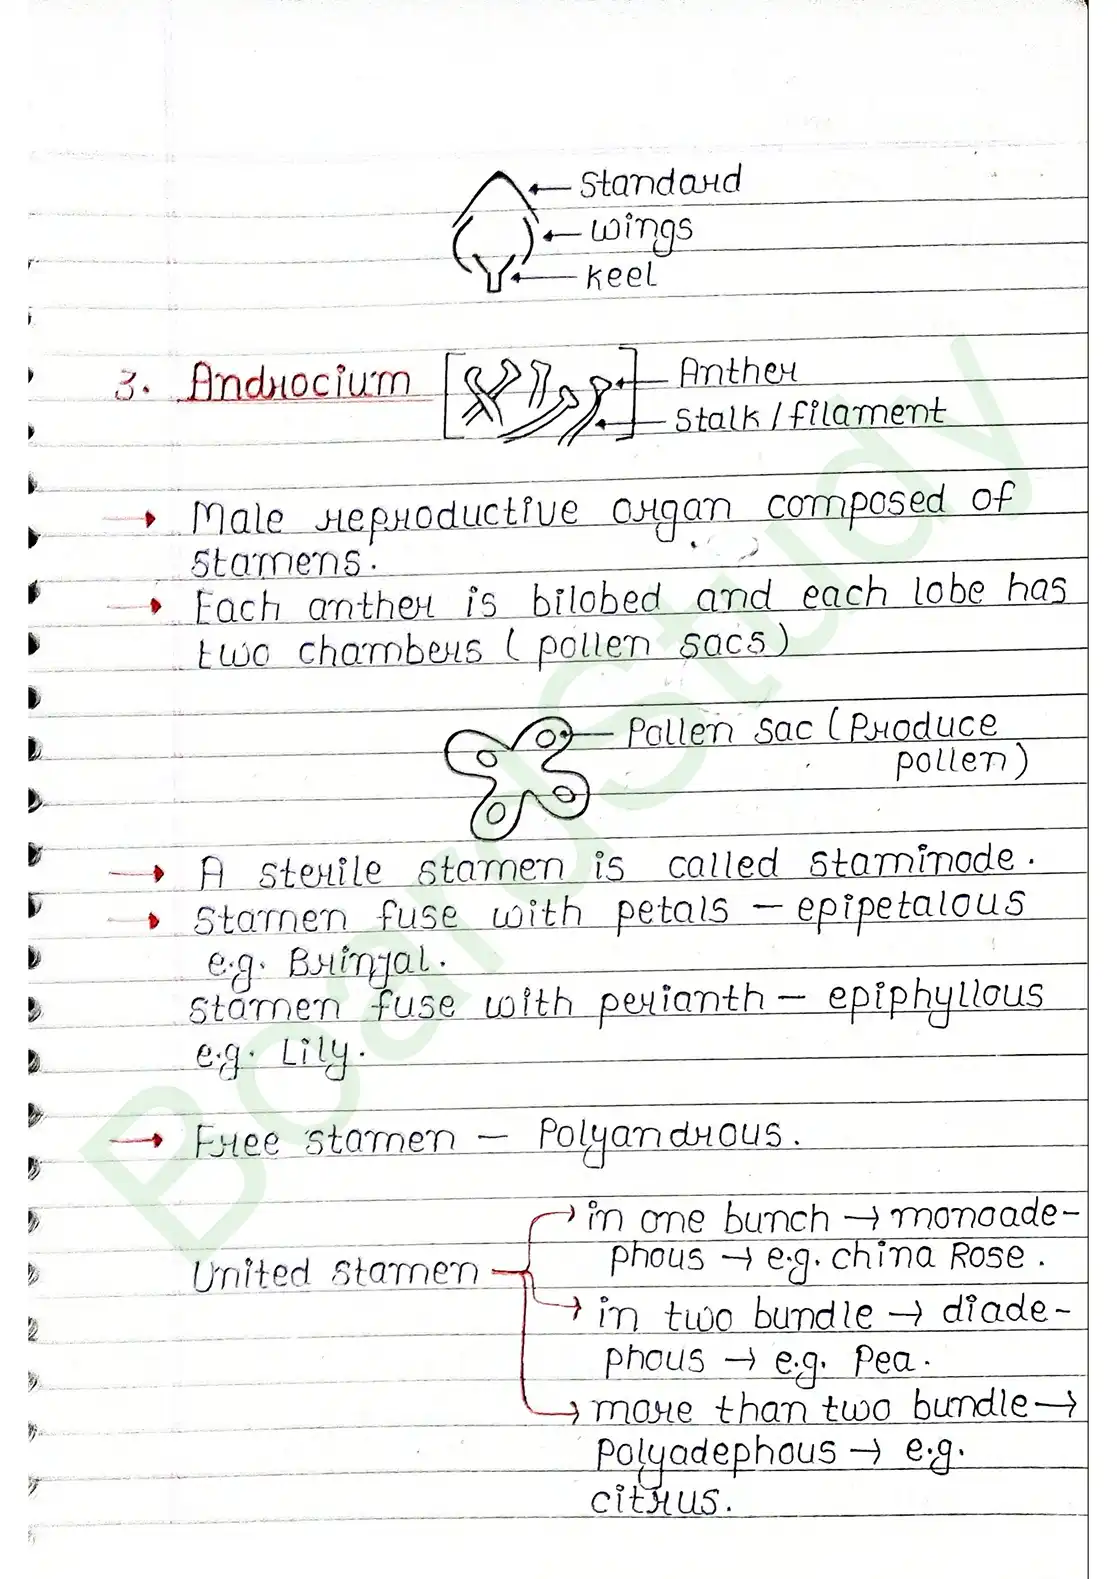 Standard
wings
keel
3. Androcium
Anther
Stalk / filament
Male reproductive organ composed of
stamens.
Each anther is bilobed and each lobe has
two chambers ( pollen sacs)
Pollen sac (Produce
pollen)
A sterile stamen is called staminode.
Stamen fuse with petals - epipetalous
e.g. Brinjal.
stamen fuse with perianth - epiphyllous
e.g. Lily.
Free stamen - Polyandrous.
in one bunch → monoade-
phous → e.g. china Rose.
United stamen
in two bundle → diade-
phous → e.g. Pea.
more than two bundle →
Polyadephous → e.g.
citrus.
BoardStudy